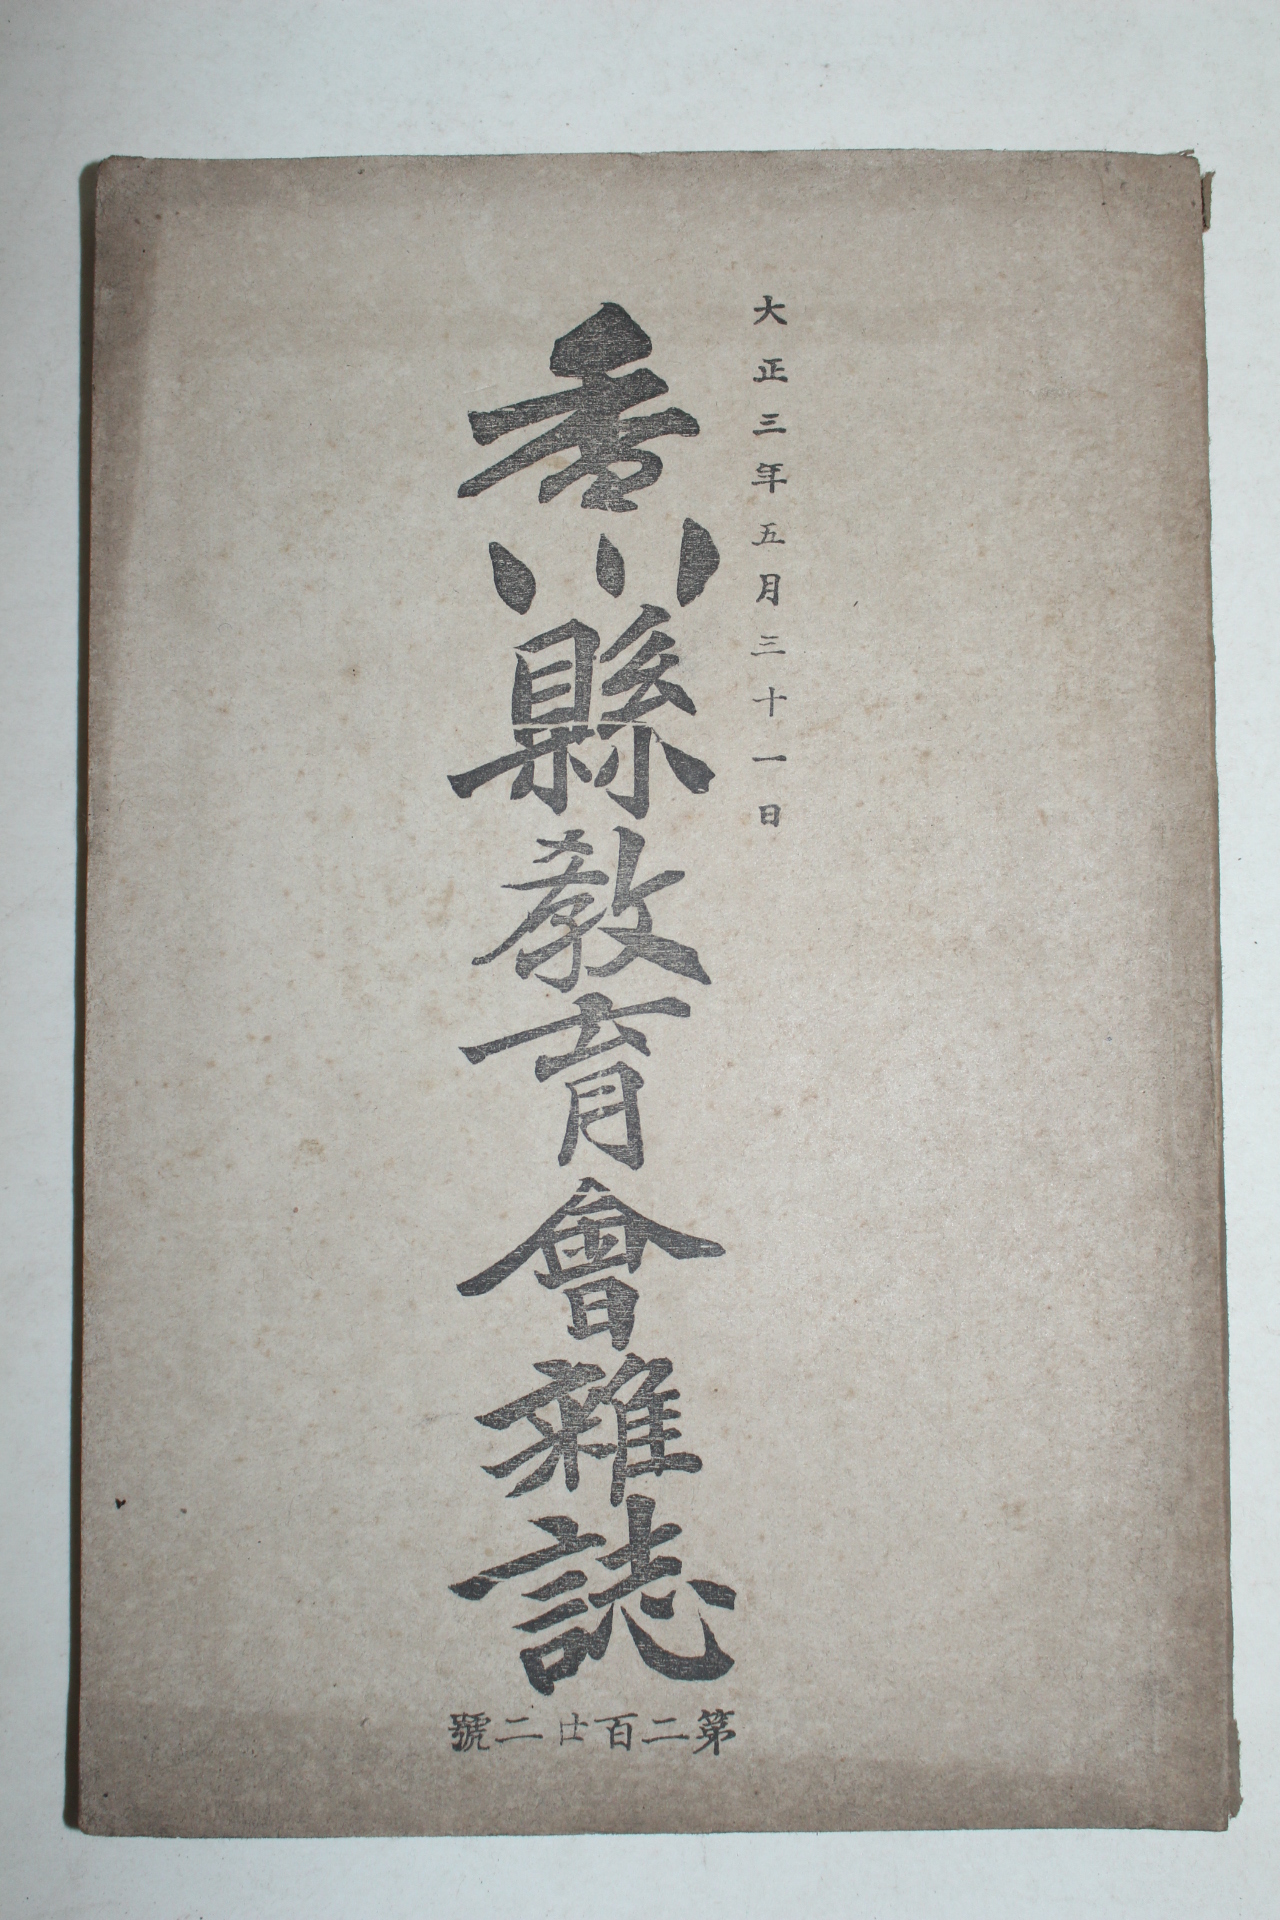 大正三年五月三十一日
香川縣教育會雜誌
第二百廿二號